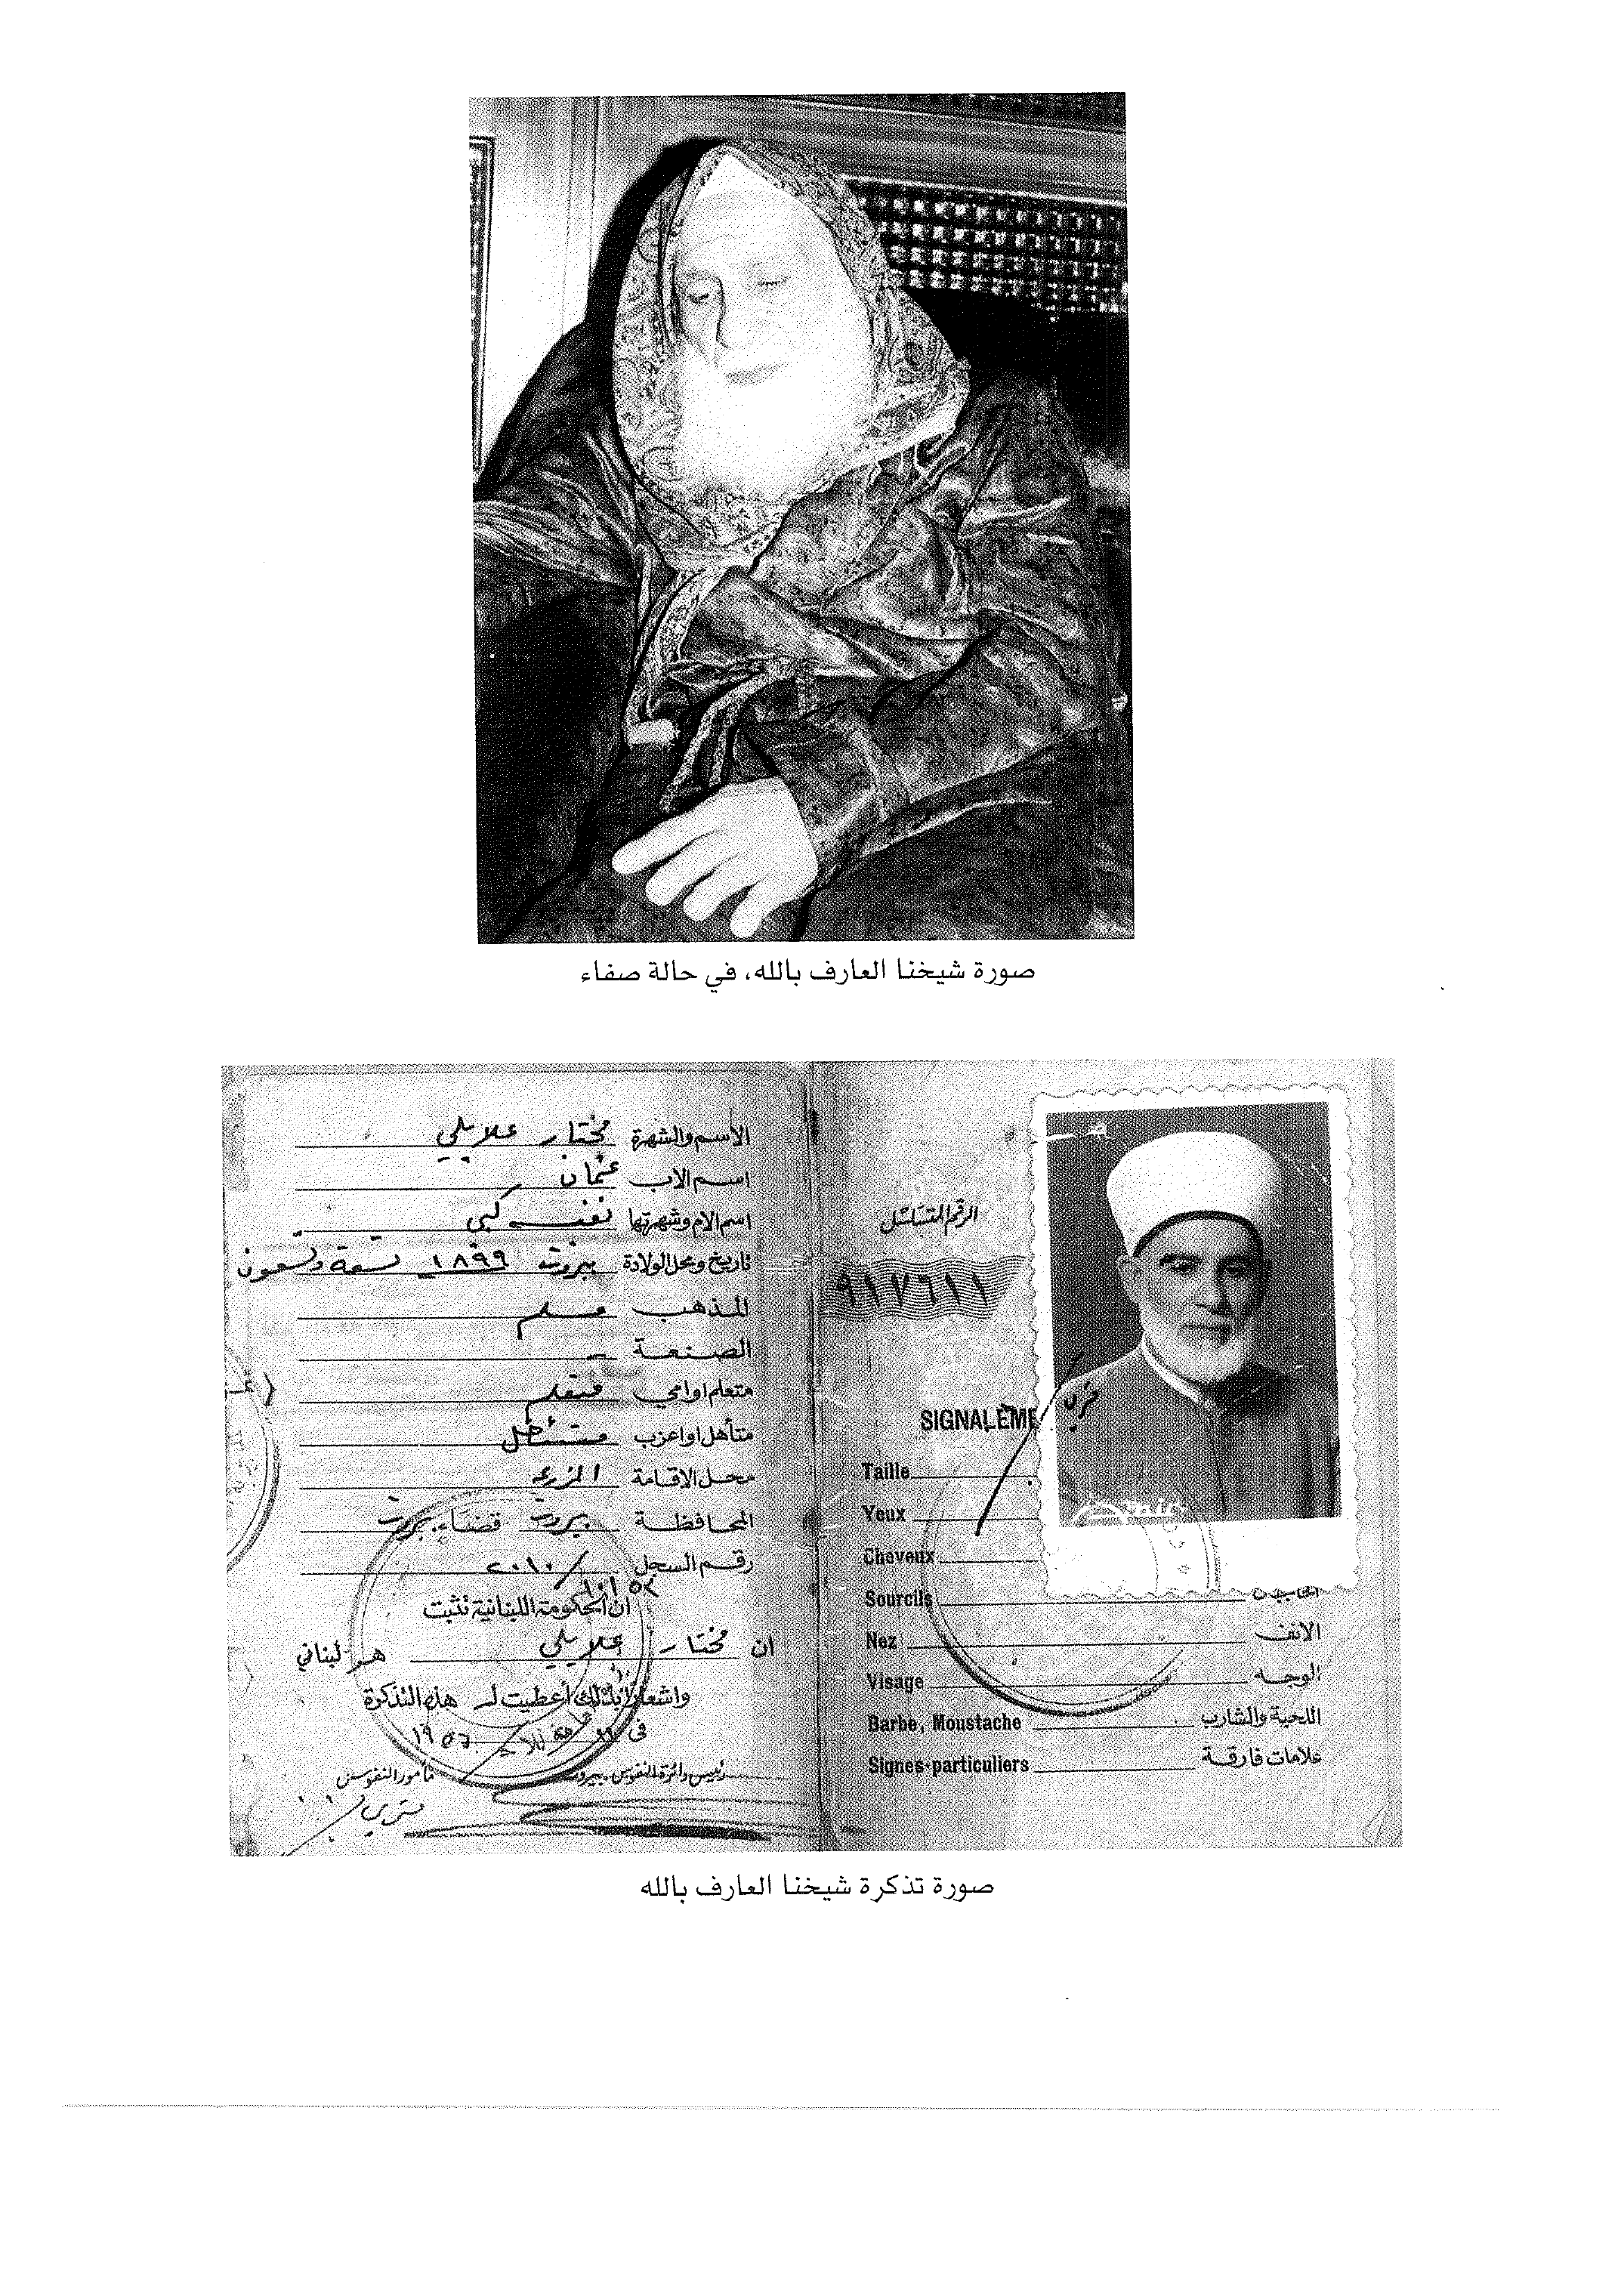 صورة شيخنا العارف بالله، في حالة صفاء
الاسم والشهرة مختار علايلي
اسم الاب عثمان
اسم الام وشهرتها نفيسه كبي
تاريخ ومحل الولادة بيروت ١٨٩٩ تسعة وتسعون
المذهب مسلم
الصنعة –
متعلم او امي متعلم
متأهل او اعزب متأهل
محل الاقامة المزرعه
المحافظة بيروت قضاء بيروت
رقم السجل ٢٠١٠/
ان الحكومة اللبنانية تثبت
ان مختار علايلي هو لبناني
واشعارا بذلك أعطيت له هذه التذكرة
في ١٩٥٢
رئيس دائرة النفوس بيروت
مأمور النفوس
الرقم المتسلسل
٩١٧٦١١
SIGNALEME
Taille
Yeux
Cheveux
Sourcils الحاجبان
Nez الانف
Visage الوجه
Barbe, Moustache اللحية والشارب
Signes particuliers علامات فارقة
صورة تذكرة شيخنا العارف بالله